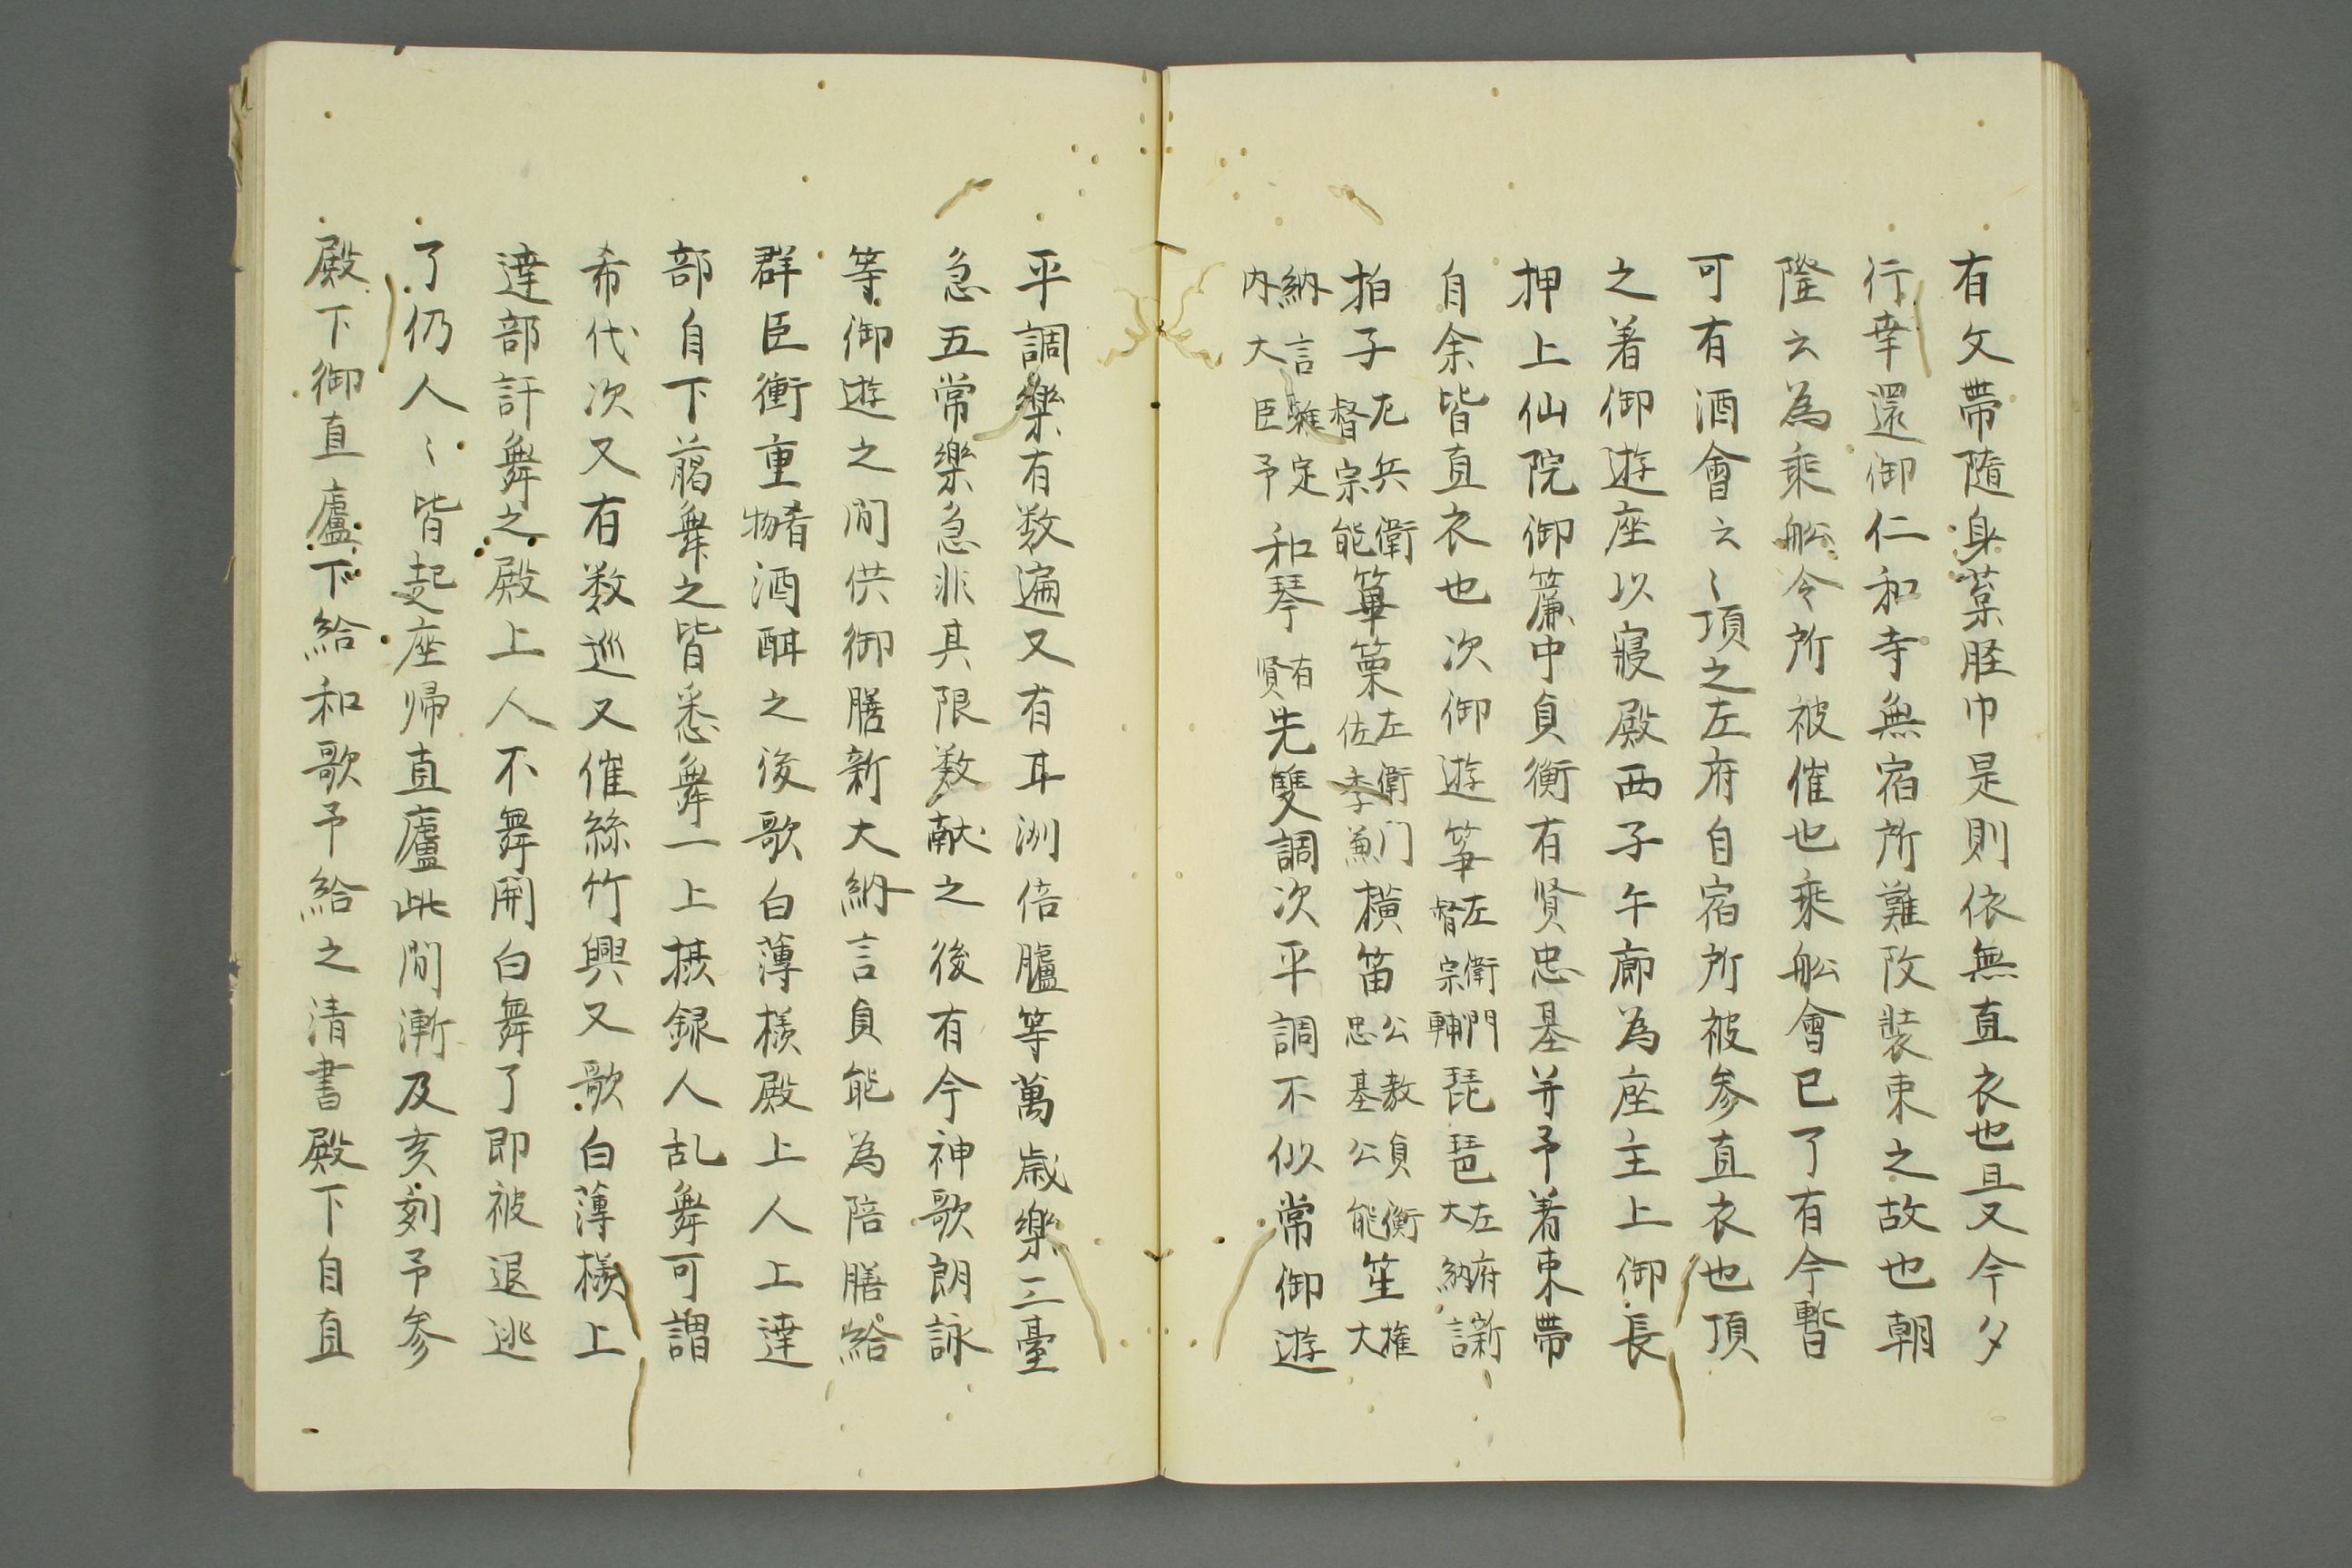 有文帯随身藁脛巾是則依無直衣也且又今夕
行幸還御仁和寺無宿所難改装束之故也朝
隆云為乗舩令所被催也乗舩會已了有今暫
可有酒會云〻項之左府自宿所被参直衣也項
之着御遊座以寝殿西子午廊為座主上御長
押上仙院御簾中貞衡有賢忠基并予着束帯
自余皆直衣也次御遊筝左衛門督宗輔琵琶左府新大納言
拍子左兵衛督宗能篳篥左衛门佐季兼横笛公教貞衡忠基公能笙権大
納言雅定内大臣予和琴有賢先雙調次平調不似常御遊
平調樂有数遍又有耳洲倍臚等萬歳樂三臺
急五常樂急非其限数献之後有今神歌朗詠
等御遊之間供御膳新大納言貞能為陪膳給
群臣衝重肴物酒酣之後歌白薄様殿上人上達
部自下﨟舞之皆悉舞一上摂録人乱舞可謂
希代次又有数巡又催絲竹興又歌白薄様上
達部許舞之殿上人不舞関白舞了即被退迯
了仍人〻皆起座帰直廬此間漸及亥刻予参
殿下御直廬下給和歌予給之清書殿下自直